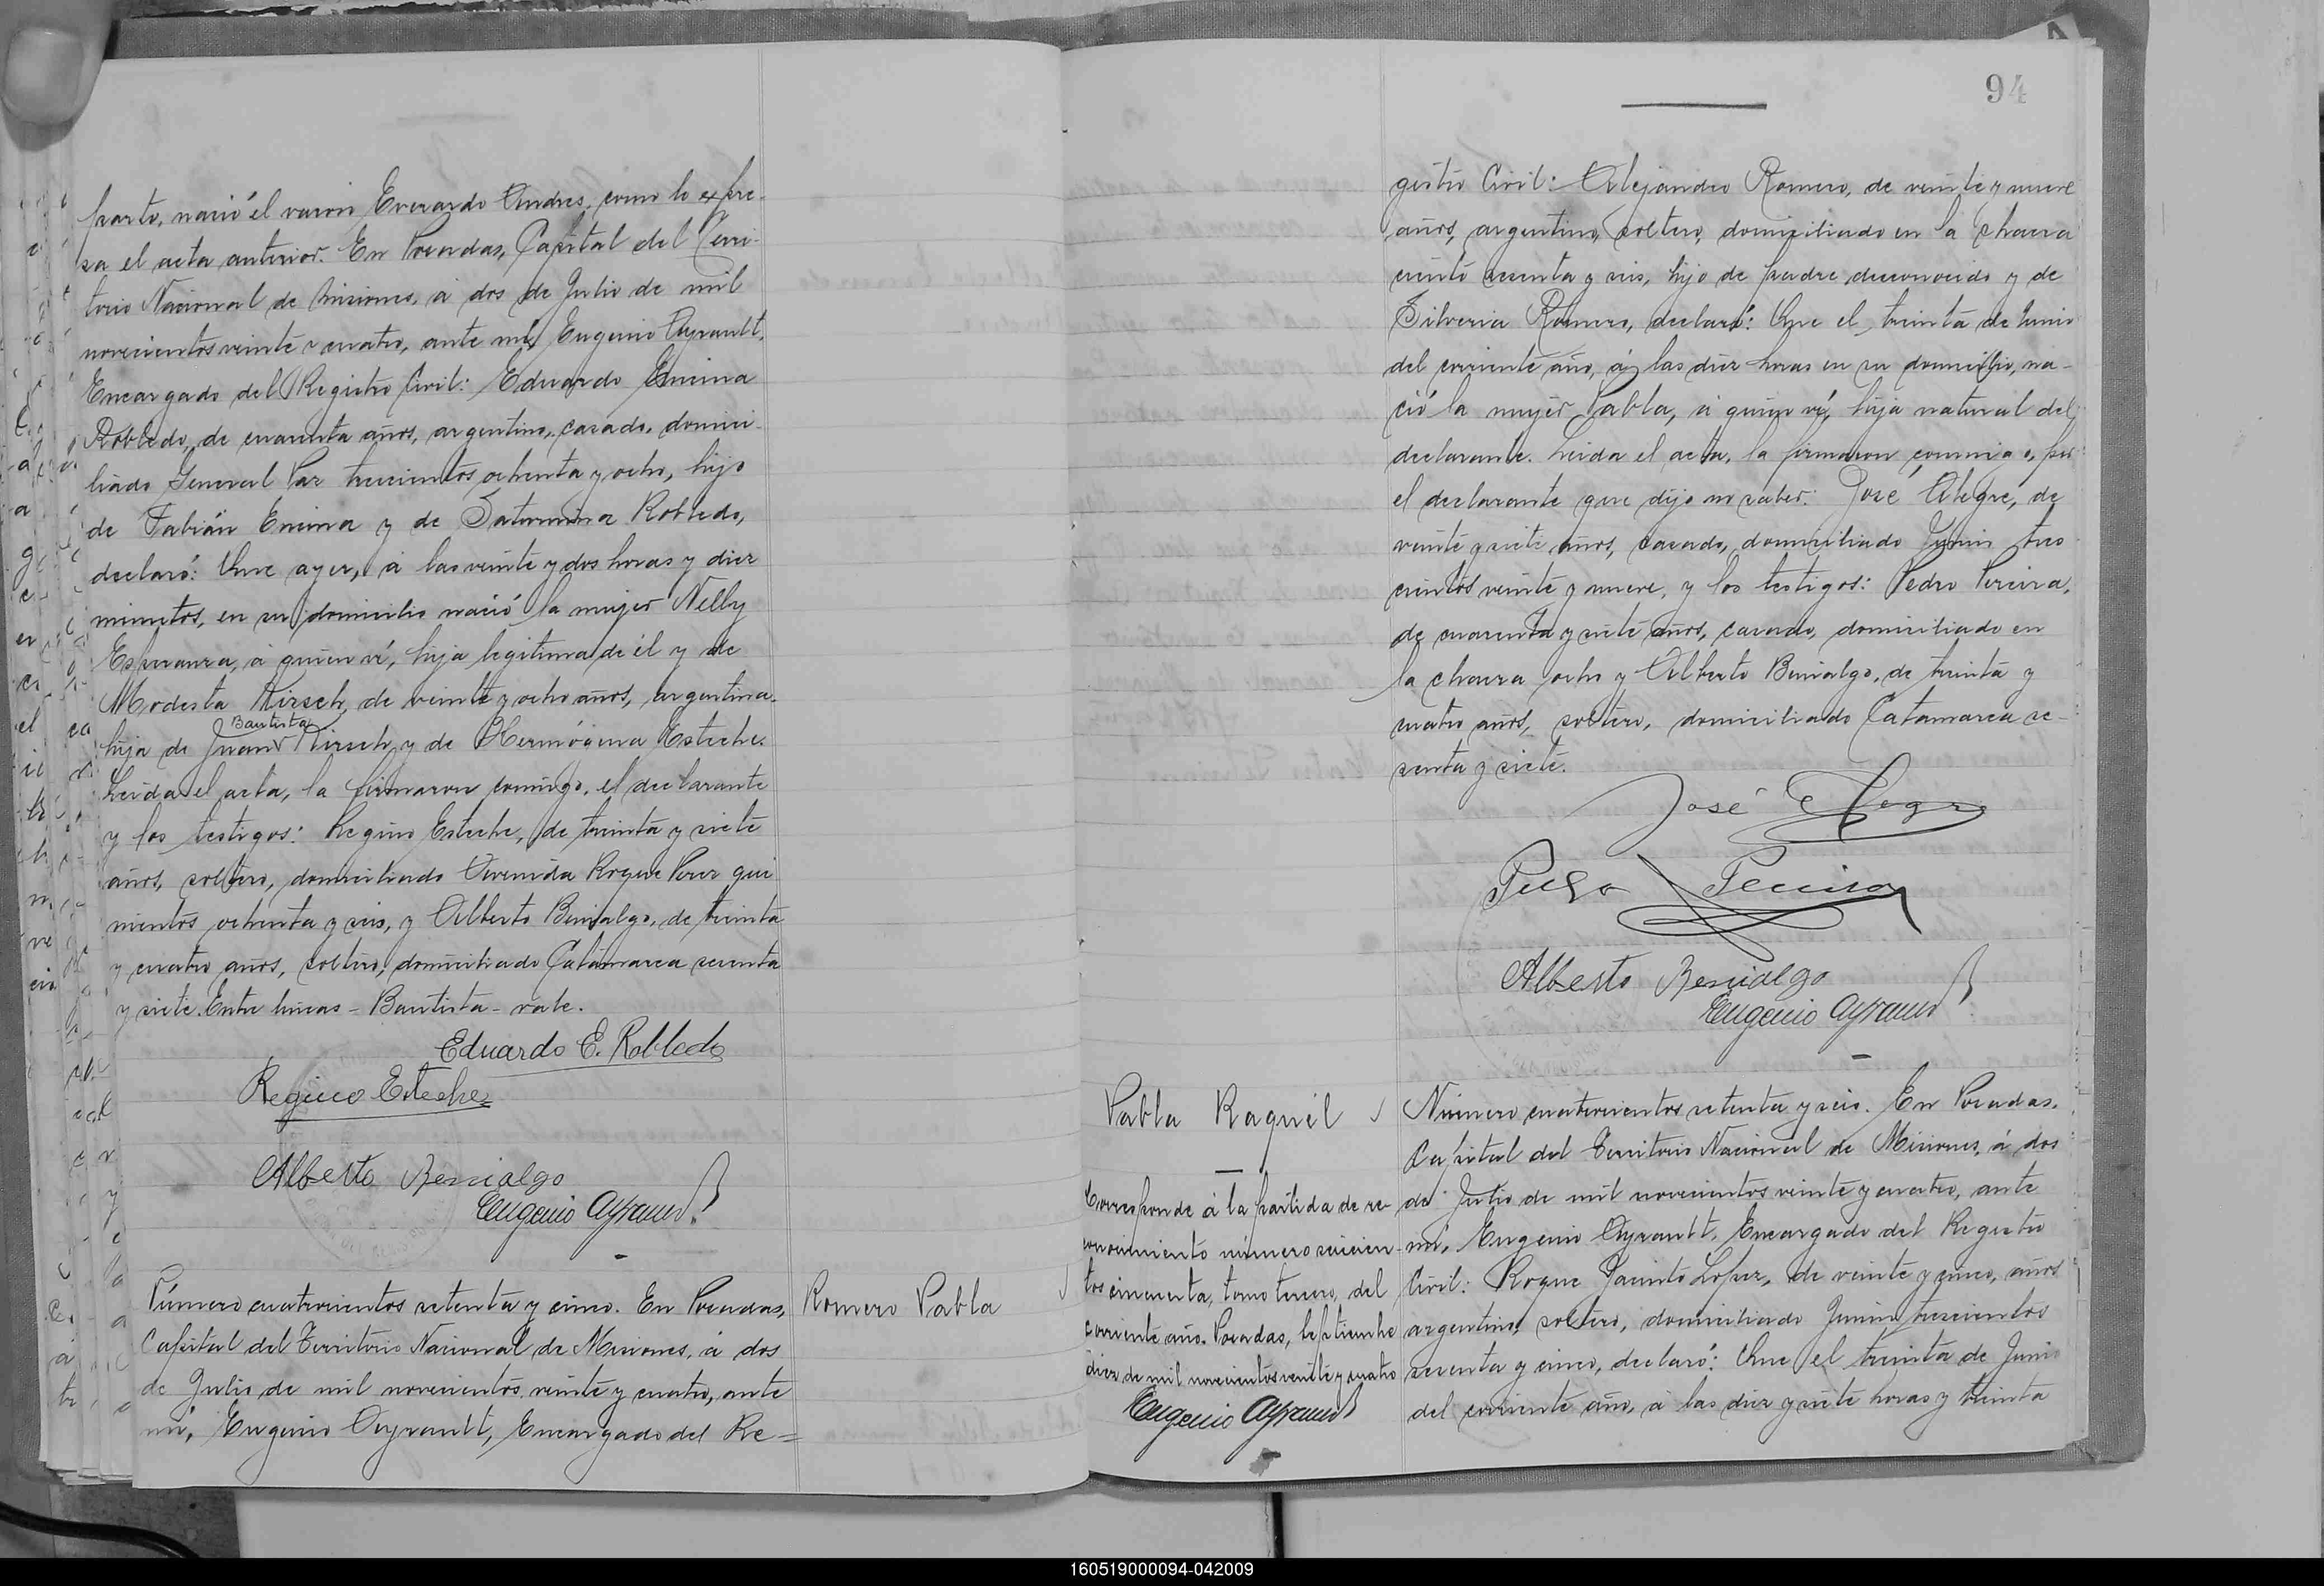 parto, nació el varón Everardo Andres, como lo expre-
sa el acta anterior. En Posadas, Capital del Terri-
torio Nacional de Misiones, á dos de Julio de mil
novecientos veinte y cuatro, ante mí, Eugenio Ayrault,
Encargado del Registro Civil: Eduardo Encina
Robledo, de cuarenta años, argentino, casado, domici-
liado General Paz trescientos ochenta y ocho, hijo
de Fabián Encina y de Saturnina Robledo,
declaró: Que ayer, á las veinte y dos horas y diez
minutos, en su domicilio nació la mujer Nelly
Esperanza, á quien ví, hija legítima de él y de
Modesta Kirsch, de veinte y ocho años, argentina,
Bautista
hija de Juan Kirsch y de Hermógena Esteche.
Leida el acta, la firmaron conmigo, el declarante
y los testigos: Regino Esteche, de treinta y siete
años, soltero, domiciliado Avenida Roque Perez qui-
nientos ochenta y seis, y Alberto Benialgo, de treinta
y cuatro años, soltero, domiciliado Catamarca sesenta
y siete. Entre lineas - Bautista - vale.
Eduardo E. Robledo
Regino Esteche
Alberto Benialgo
Eugenio Ayrault
Número cuatrocientos setenta y cinco. En Posadas,
Capital del Territorio Nacional de Misiones, á dos
de Julio de mil novecientos veinte y cuatro, ante
mí, Eugenio Ayrault, Encargado del Re=
Romero Pabla
94
gistro Civil: Alejandro Romero, de veinte y nueve
años, argentino, soltero, domiciliado en la chacra
ciento sesenta y seis, hijo de padre desconocido y de
Silveria Romero, declaró: Que el treinta de Junio
del corriente año, á las diez horas en su domicilio, na-
ció la mujer Pabla, á quien ví, hija natural del
declarante. Leida el acta, la firmaron conmigo, por
el declarante que dijo no saber: José Alegre, de
veinte y siete años, casado, domiciliado Junin tres
cientos veinte y nueve, y los testigos: Pedro Pereira,
de cuarenta y siete años, casado, domiciliado en
la chacra ocho y Alberto Benialgo, de treinta y
cuatro años, soltero, domiciliado Catamarca se-
senta y siete.
José Alegre
Pedro Pereira
Alberto Benialgo
Eugenio Ayrault
Pabla Raquél
Corresponde á la partida de re-
conocimiento número seiscien-
tos cincuenta, tomo tercero, del
corriente año. Posadas, Septiembre
diez de mil novecientos veinte y cuatro
Eugenio Ayrault
Número cuatrocientos setenta y seis. En Posadas,
Capital del Territorio Nacional de Misiones, á dos
de Julio de mil novecientos veinte y cuatro, ante
mí, Eugenio Ayrault, Encargado del Registro
Civil: Roque Jacinto Lopez, de veinte y cinco, años
argentino, soltero, domiciliado Junin trescientos
sesenta y cinco, declaró: Que el treinta de Junio
del corriente año, á las diez y siete horas y treinta
160519000094-042009